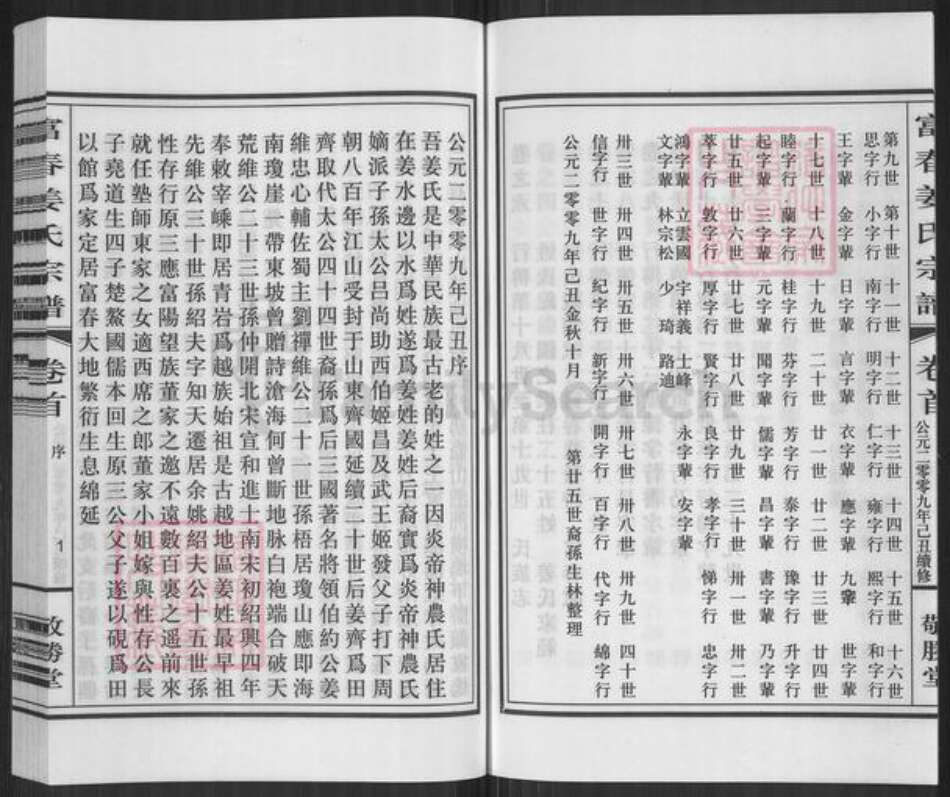 富春姜氏宗譜 卷首 公元二零零九年己丑續修 敬勝堂
第九世 第十世 十一世 十二世 十三世 十四世 十五世 十六世
思字行 小字行 南字行 明字行 仁字行 雍字行 熙字行 和字行
王字輩 金字輩 日字輩 言字輩 衣字輩 應字輩 九輩 世字輩
十七世 十八世 十九世 二十世 廿一世 廿二世 廿三世 廿四世
睦字行 蘭字行 桂字行 芬字行 芳字行 泰字行 豫字行 升字行
起字輩 三字輩 元字輩 聞字輩 儒字輩 昌字輩 書字輩 乃字輩
廿五世 廿六世 廿七世 廿八世 廿九世 三十世 卅一世 卅二世
萃字行 敦字行 厚字行 賢字行 良字行 孝字行 悌字行 忠字行
鴻字輩 立雲國 宇祥義 士峰 永字輩 安字輩
文字輩 林宗松 少 琦 路迪
卅三世 卅四世 卅五世 卅六世 卅七世 卅八世 卅九世 四十世
信字行 世字行 紀字行 新字行 開字行 百字行 代字行 綿字行
公元二零零九年己丑金秋十月 第廿五世裔孫生林整理
公元二零零九年己丑序
吾姜氏是中華民族最古老的姓之一因炎帝神農氏居住
在姜水邊以水爲姓遂爲姜姓姜姓后裔實爲炎帝神農氏
嫡派子孫太公呂尚助西伯姬昌及武王姬發父子打下周
朝八百年江山受封于山東齊國延續二十世后姜齊爲田
齊取代太公四十四世裔孫爲后三國著名將領伯約公姜
維忠心輔佐蜀主劉禪維公二十一世孫梧居瓊山應即海
南瓊崖一帶東坡曾贈詩滄海何曾斷地脉白袍端合破天
荒維公二十三世孫仲開北宋宣和進士南宋初紹興四年
奉敕宰嵊即居青岩爲越族始祖是古越地區姜姓最早祖
先維公三十世孫紹夫字知天遷居余姚紹夫公十五世孫
性存行原三應富陽望族董家之邀不遠數百裏之遥前來
就任塾師東家之女適西席之郎董家小姐嫁與性存公長
子堯道生四子楚鰲國儒本回生原三公父子遂以硯爲田
以館爲家定居富春大地繁衍生息綿延
富春姜氏宗譜 卷首 序 1 敬勝堂
FamilySearch